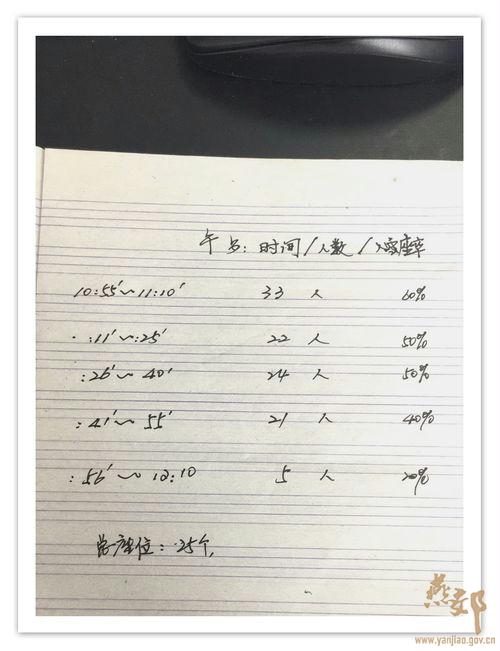 午 : 时间/人数/入座率
10:55'~11:10' 33 人 60%
:11'~:25' 22 人 50%
:26'~40' 24 人 50%
:41'~55' 21 人 40%
:56'~12:10 5 人 20%
总座位:25个,
燕郊
www.yanjiao.gov.cn